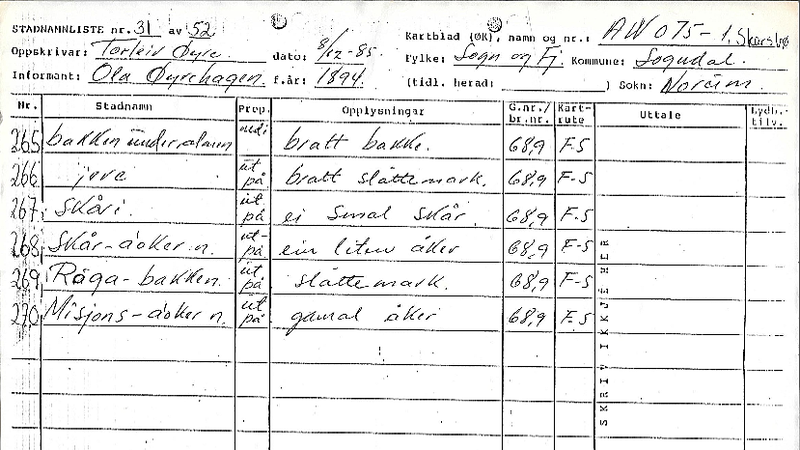 STADNAMNLISTE nr. 31 av 52
Kartblad (ØK), namn og nr.: AW 075-1,
Oppskrivar: Torleiv Øyre dato: 8/12-85.
Fylke: Sogn og Fj. Kommune: Sogndal.
Informant: Ola Øyrehagen. f.år: 1894.
(tidl. herad: ) Sokn: Norum.
Nr. Stadnamn Prep. Opplysningar G.nr./br.nr. Kart-rute Uttale Lydb.-tilv.
265 bakken under bratt bakke. 68,9 F-5
266 ut på bratt slåttemark. 68,9 F-5
267 Skåri. ut på ei smal skår. 68,9 F-5
268 Skår-åoker n. ut-på ein liten åker 68,9 F-5
269 Råga-bakken. ut på slåttemark. 68,9 F-5
270 Misjons-åoker n. ut på gamal åker 68,9 F-5
SKRIV IKKJE HER